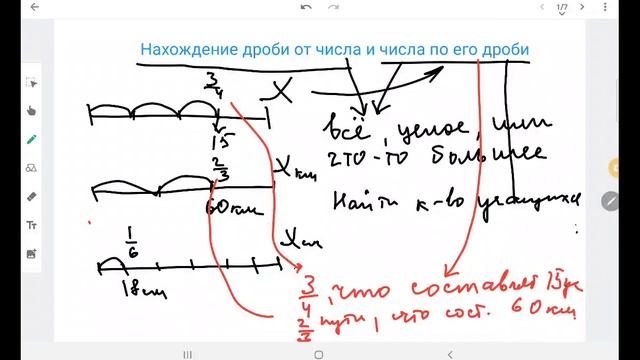 1/7
Нахождение дроби от числа и числа по его дроби
3/4
X
15
всё, целое, или
что-то большее
2/3
X км
60 км
Найти к-во учащихся
1/6
X см
18 см
3/4, что составляет 15 уч
2/3 пути, что сост. 60 км